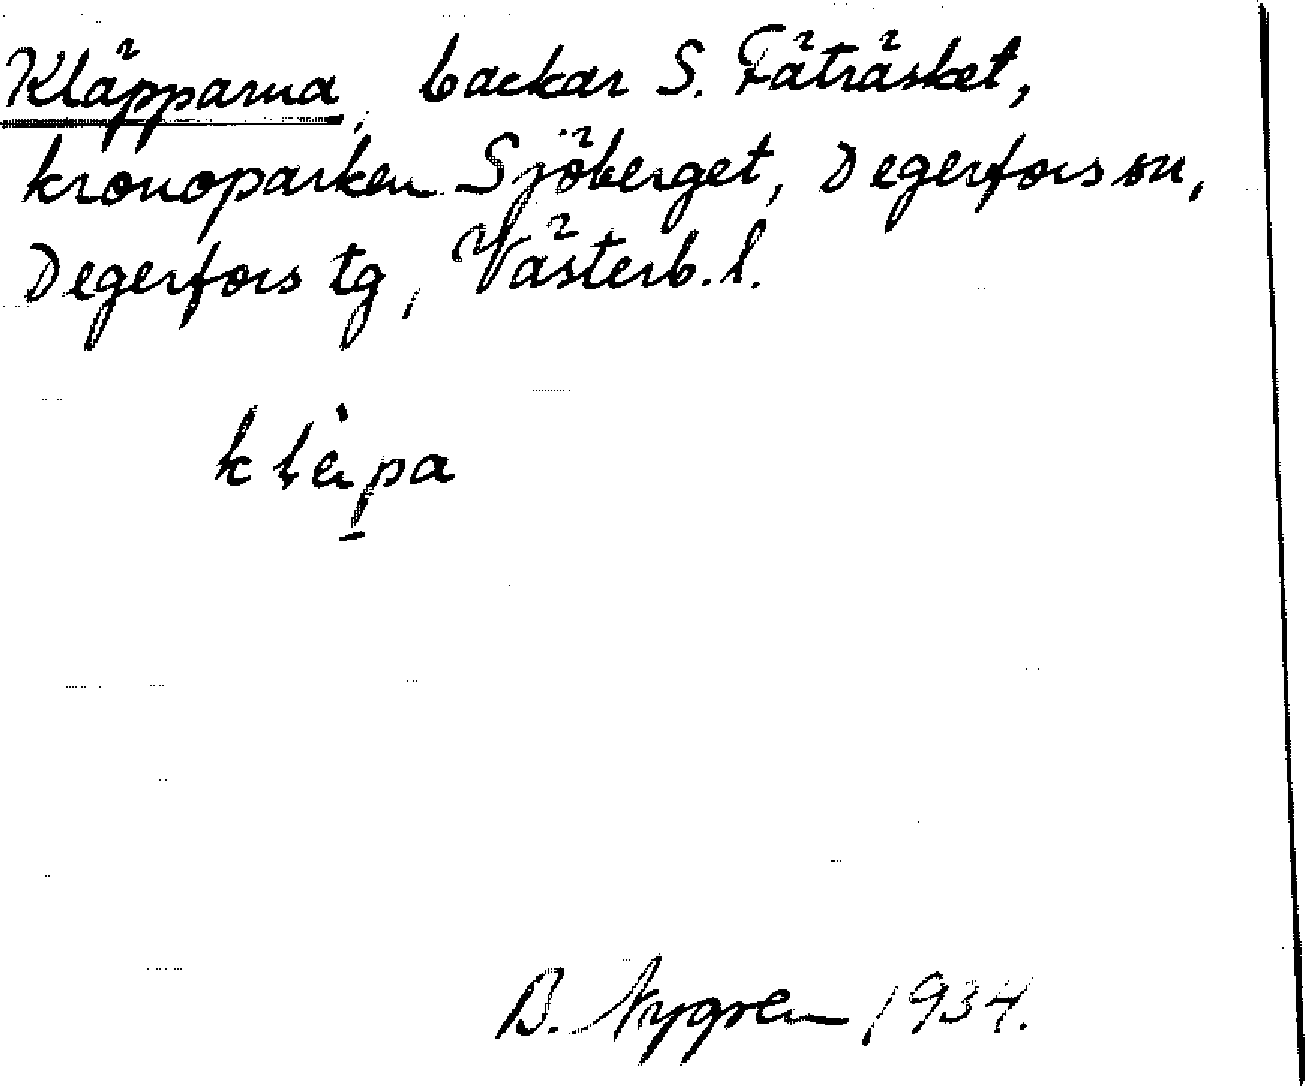 Kläpparna, backar S. Fäträsket,
kronoparken Sjöberget, Degerfors sn,
Degerfors tg, Västerb. l.
B. Nygren 1934.